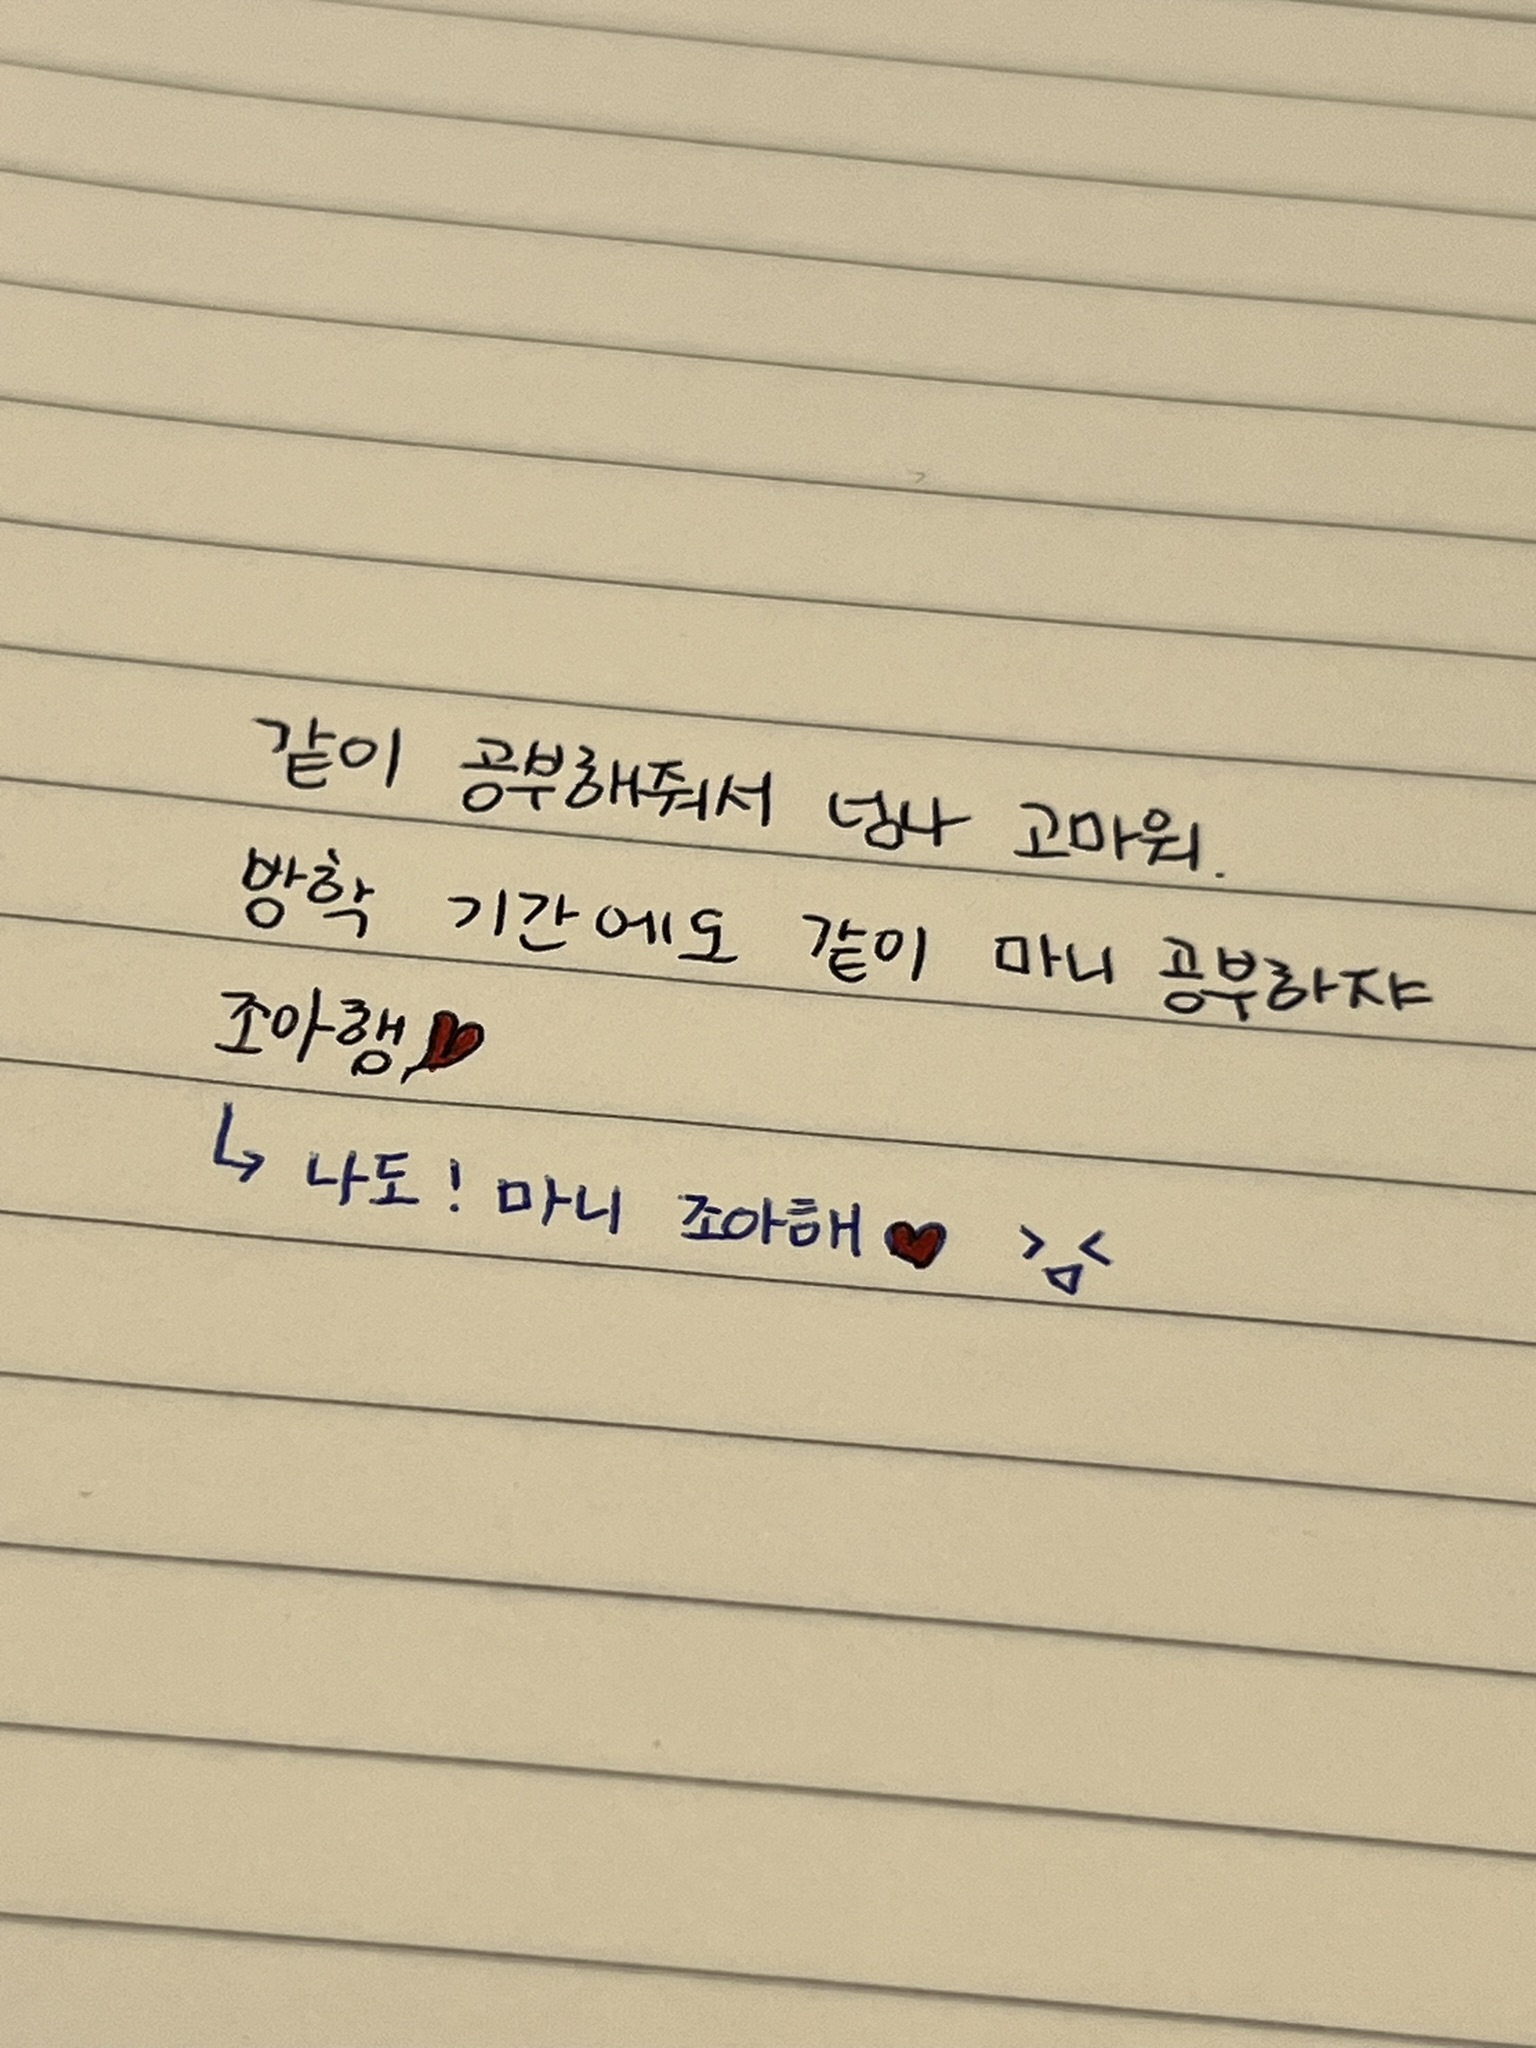 같이 공부해줘서 넘나 고마워.
방학 기간에도 같이 마니 공부하쟈
조아행♥
↳ 나도! 마니 조아해♥ >ㅁ<